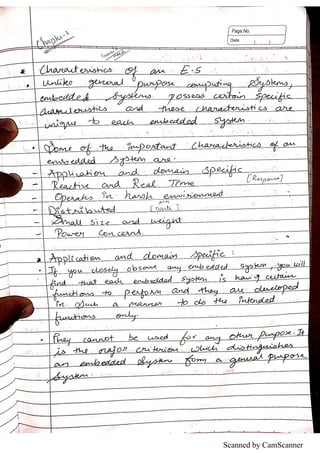 Page No.
Date
Chapter-3
* Characteristics of an E.S
• Unlike general purpose computing systems,
embedded systems possess certain specific
characteristics and these characteristics are
unique to each embedded system
• Some of the important characteristics of an
embedded system are:
- Application and domain specific
- Reactive and Real Time [Response]
- Operates in harsh environment
- Distributed
- Small size and weight
- Power concerns.
* Application and domain specific:
• If you closely observe any embedded system, you will
find that each embedded system is having certain
functions to perform and they are developed
in such a manner to do the intended
functions only.
• They cannot be used for any other purpose. It
is the major criterion which distinguishes
an embedded system from a general purpose
system.
Scanned by CamScanner